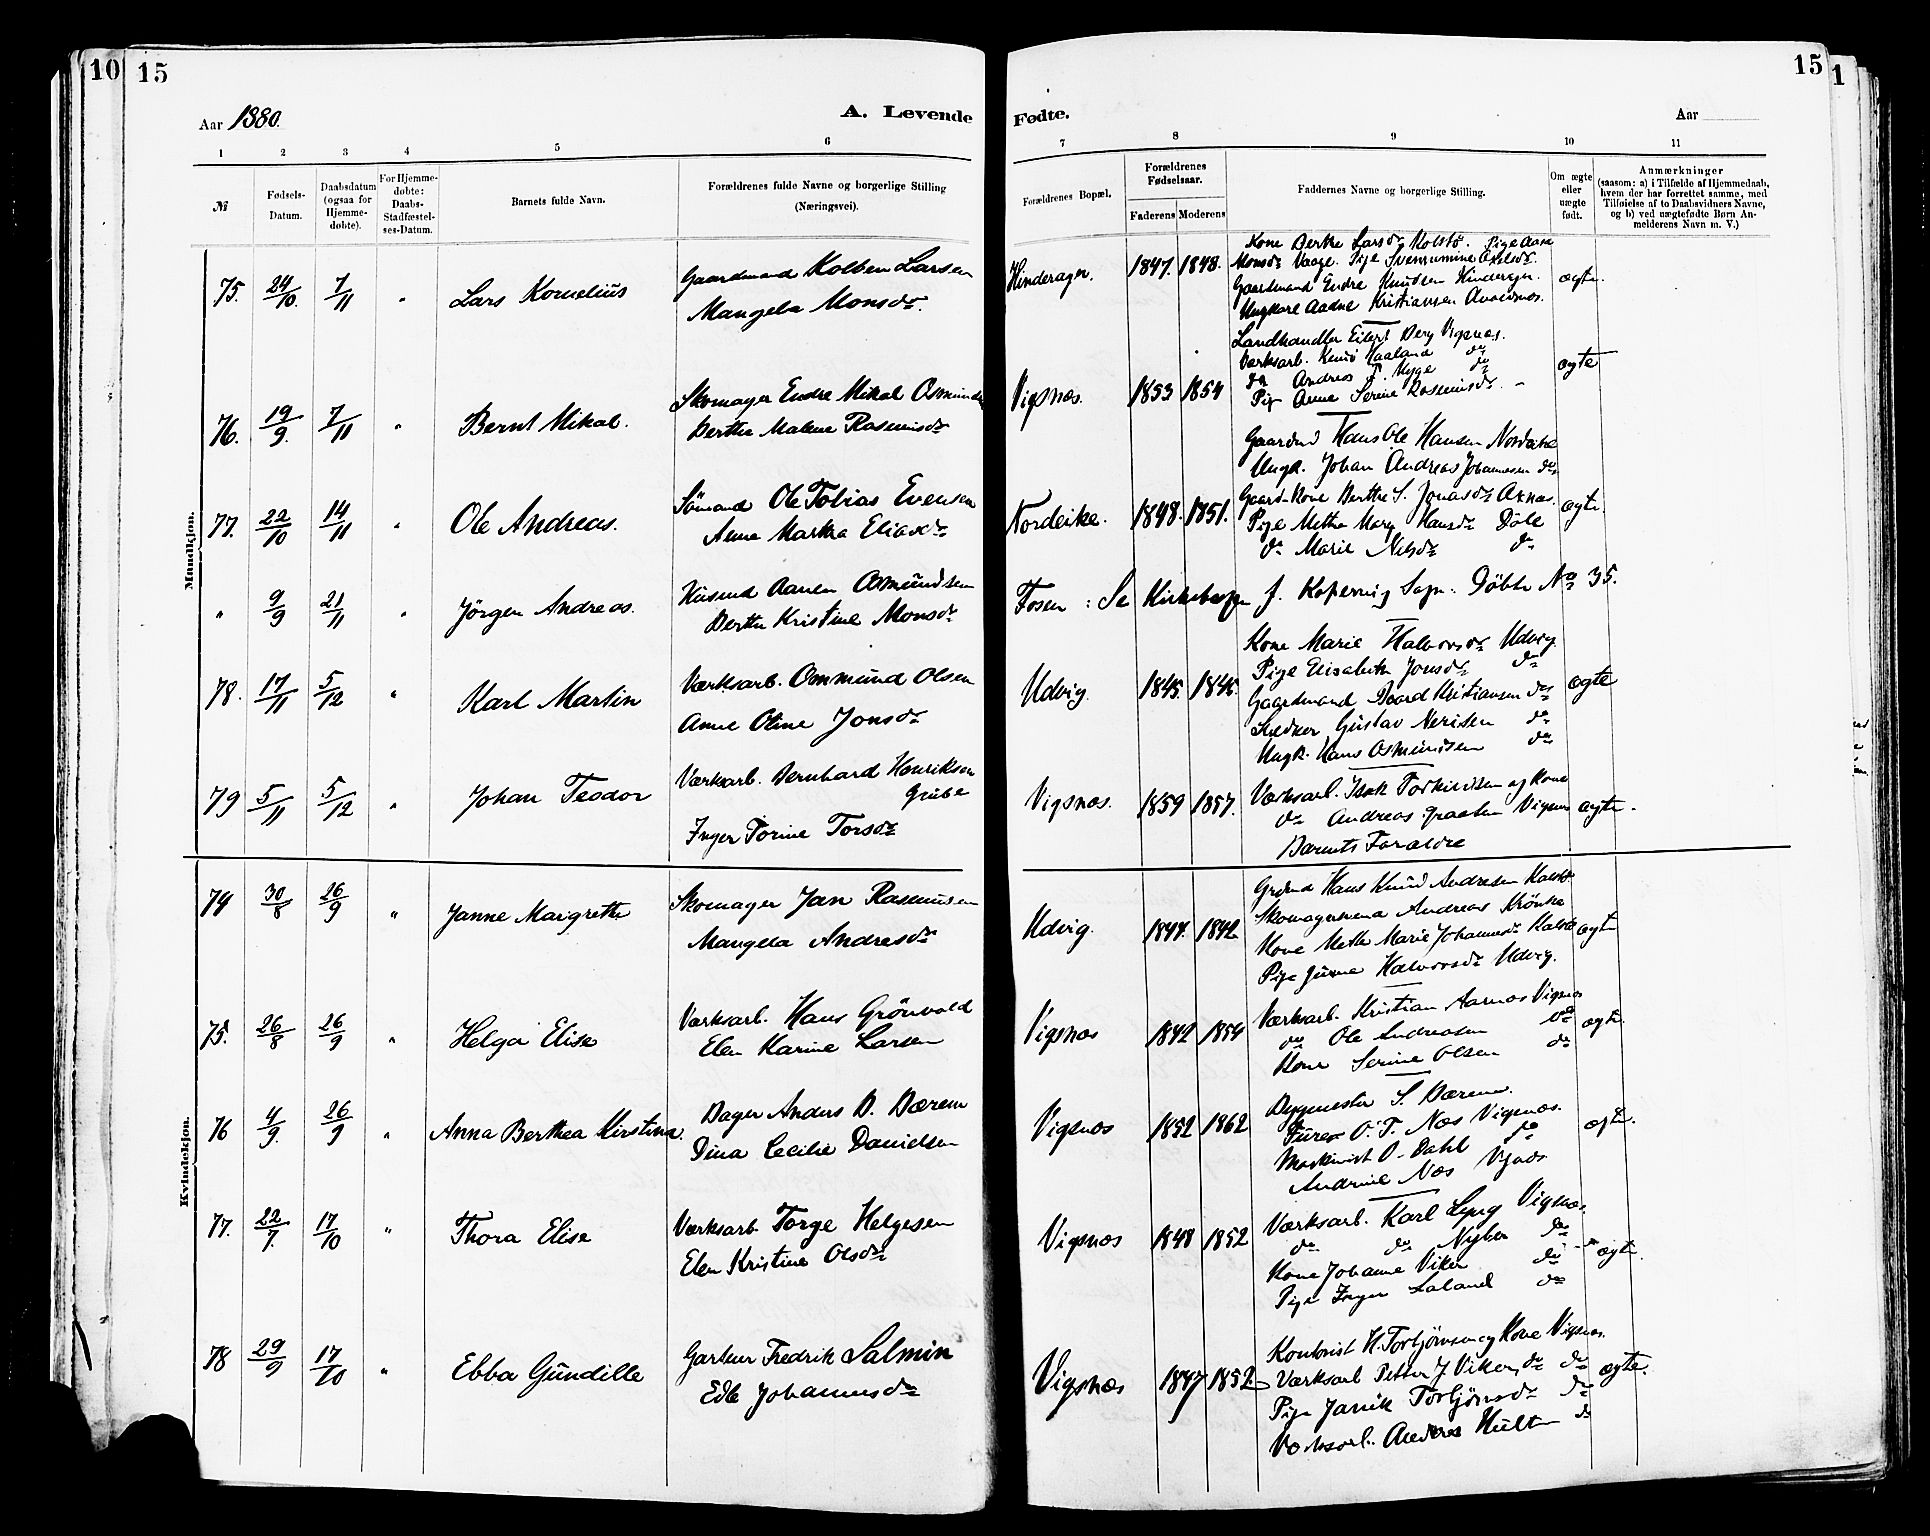 10
15
15
1
Aar 1880.
A. Levende
Fødte.
Aar
1
2
3
4
5
6
7
8
9
10
11
№
Fødsels-
Datum.
Daabsdatum
(ogsaa for
Hjemme-
døbte).
For Hjemme-
døbte:
Daabs-
Stadfæstel-
ses-Datum.
Barnets fulde Navn.
Forældrenes fulde Navne og borgerlige Stilling
(Næringsvei).
Forældrenes Bopæl.
Forældrenes
Fødselsaar.
Faderens
Moderens
Faddernes Navne og borgerlige Stilling.
Om ægte
eller
uægte
født.
Anmærkninger
(saasom: a) i Tilfælde af Hjemmedaab,
hvem der har forrettet samme, med
Tilføielse af to Daabsvidners Navne,
og b) ved uægtefødte Børn An-
melderens Navn m. V.)
Mandkjøn.
75. 24/10. 7/11 " Lars Kornelius
Gaardmand Kolben Larsen
Mangela Monsdr.
Hinderager. 1847. 1848.
Kone Berthe Larsdr Kolstø. Pige Aase
Monsdr Vaage. Pige Svennumine Axelsdr.
Gaardmand Endre Knudsen Hinderager.
Ungkarl Aadne Kristiansen Avaldsnes.
ægte.
76. 19/9. 7/11 " Bernt Mikal.
Skomager Endre Mikal Osmunds
Berthe Malene Rasmusdr
Vigsnæs. 1853 1854
Landhandler Eilert Berg Vigsnæs.
Værksarb. Haaland do
do Andreas Myge do
Pige Anne Serine Rasmusdr
ægte
77. 22/10 14/11 " Ole Andreas.
Sømand Ole Tobias Evensen
Anne Martha Eliasdr
Nordeike. 1848. 1851.
Gaardmd Hans Ole Hansen Nordeike
Ungk. Johan Andreas Johannesen do
Gaard-Kone Berthe S. Jonasdr Aknæs.
Pige Mette Mary Hansdr Døle
do Marie Nelsdr do
ægte.
" 9/9 21/11 " Jörgen Andreas.
Husmd Aanen Osmundsen
Berthe Kristine Monsdr
Fosen : Se Kirkebogen f. Kopervig Sogn: Döbte No 35.
78. 17/11 5/12 " Karl Martin
Værksarb. Ommund Olsen
Anne Oline Jonsdr
Udvig. 1845. 1846.
Kone Marie Halvorsdr Udvig
Pige Elisabeth Jonsdr do
Gaardmand Baard Kristiansen do
Gustav Nerisen do
Ungk. Hans Osmundsen do
ægte
79 5/11 5/12 " Johan Teodor
Værksarb. Bernhard Henriksen
Grube
Inger Torine Torsdr
Vigsnæs. 1859 1857.
Værksarb. Isak Torkildsen og Kone
do Andreas Graaten Vigsnæs
Barnets Forældre
ægte.
Kvindekjøn.
74 30/8 26/9 " Janne Margrethe
Skomager Jan Rasmusen
Mangela Andresdr
Udvig. 1844. 1842
Grdmd Hans Knud Andresen Kalstø
Skomagersvend Andreas
Kone Mette Marie Johannesdr Kalstø
Pige Halvorsdr Udvig.
ægte
75. 26/8 26/9 " Helga Elise
Værksarb. Hans Grönvold
Elen Karine Larsen
Vigsnæs 1842 1854
Værksarb. Kristian Aarnæs Vigsnæs
do Ole Andreasen do
Kone Serine Olsen do
ægte.
76 4/9. 26/9 " Anna Berthea Kirstina.
Bager Anders B. Bærem
Dina Cecilie Danielsen
Vigsnæs 1852 1862
Bygmester S. Bærem.
O. T. Næs Vigsnæs.
Maskinist O. Dahl do
Andrine Næs Vigsnæs
ægte.
77. 22/7. 17/10 " Thora Elise
Værksarb. Torge Helgesen
Elen Kristine Olsdr
Vigsnæs 1848 1852
Værksarb. Karl Lyng Vigsnæs.
do do Nyben do
Kone Johanne Viker do
Pige Inger Laland do
ægte.
78 29/9 17/10 " Ebba Gundille
Gartner Fredrik Salmin
Edle Johannesdr
Vigsnæs 1847 1852.
Kontorist H. Torbjörnsen og Kone Vigsnæs.
Værksarb Petter J Viker, do do
Pige Janik Torbjörnsdr do
Værksarb. Anders Hult do
ægte.